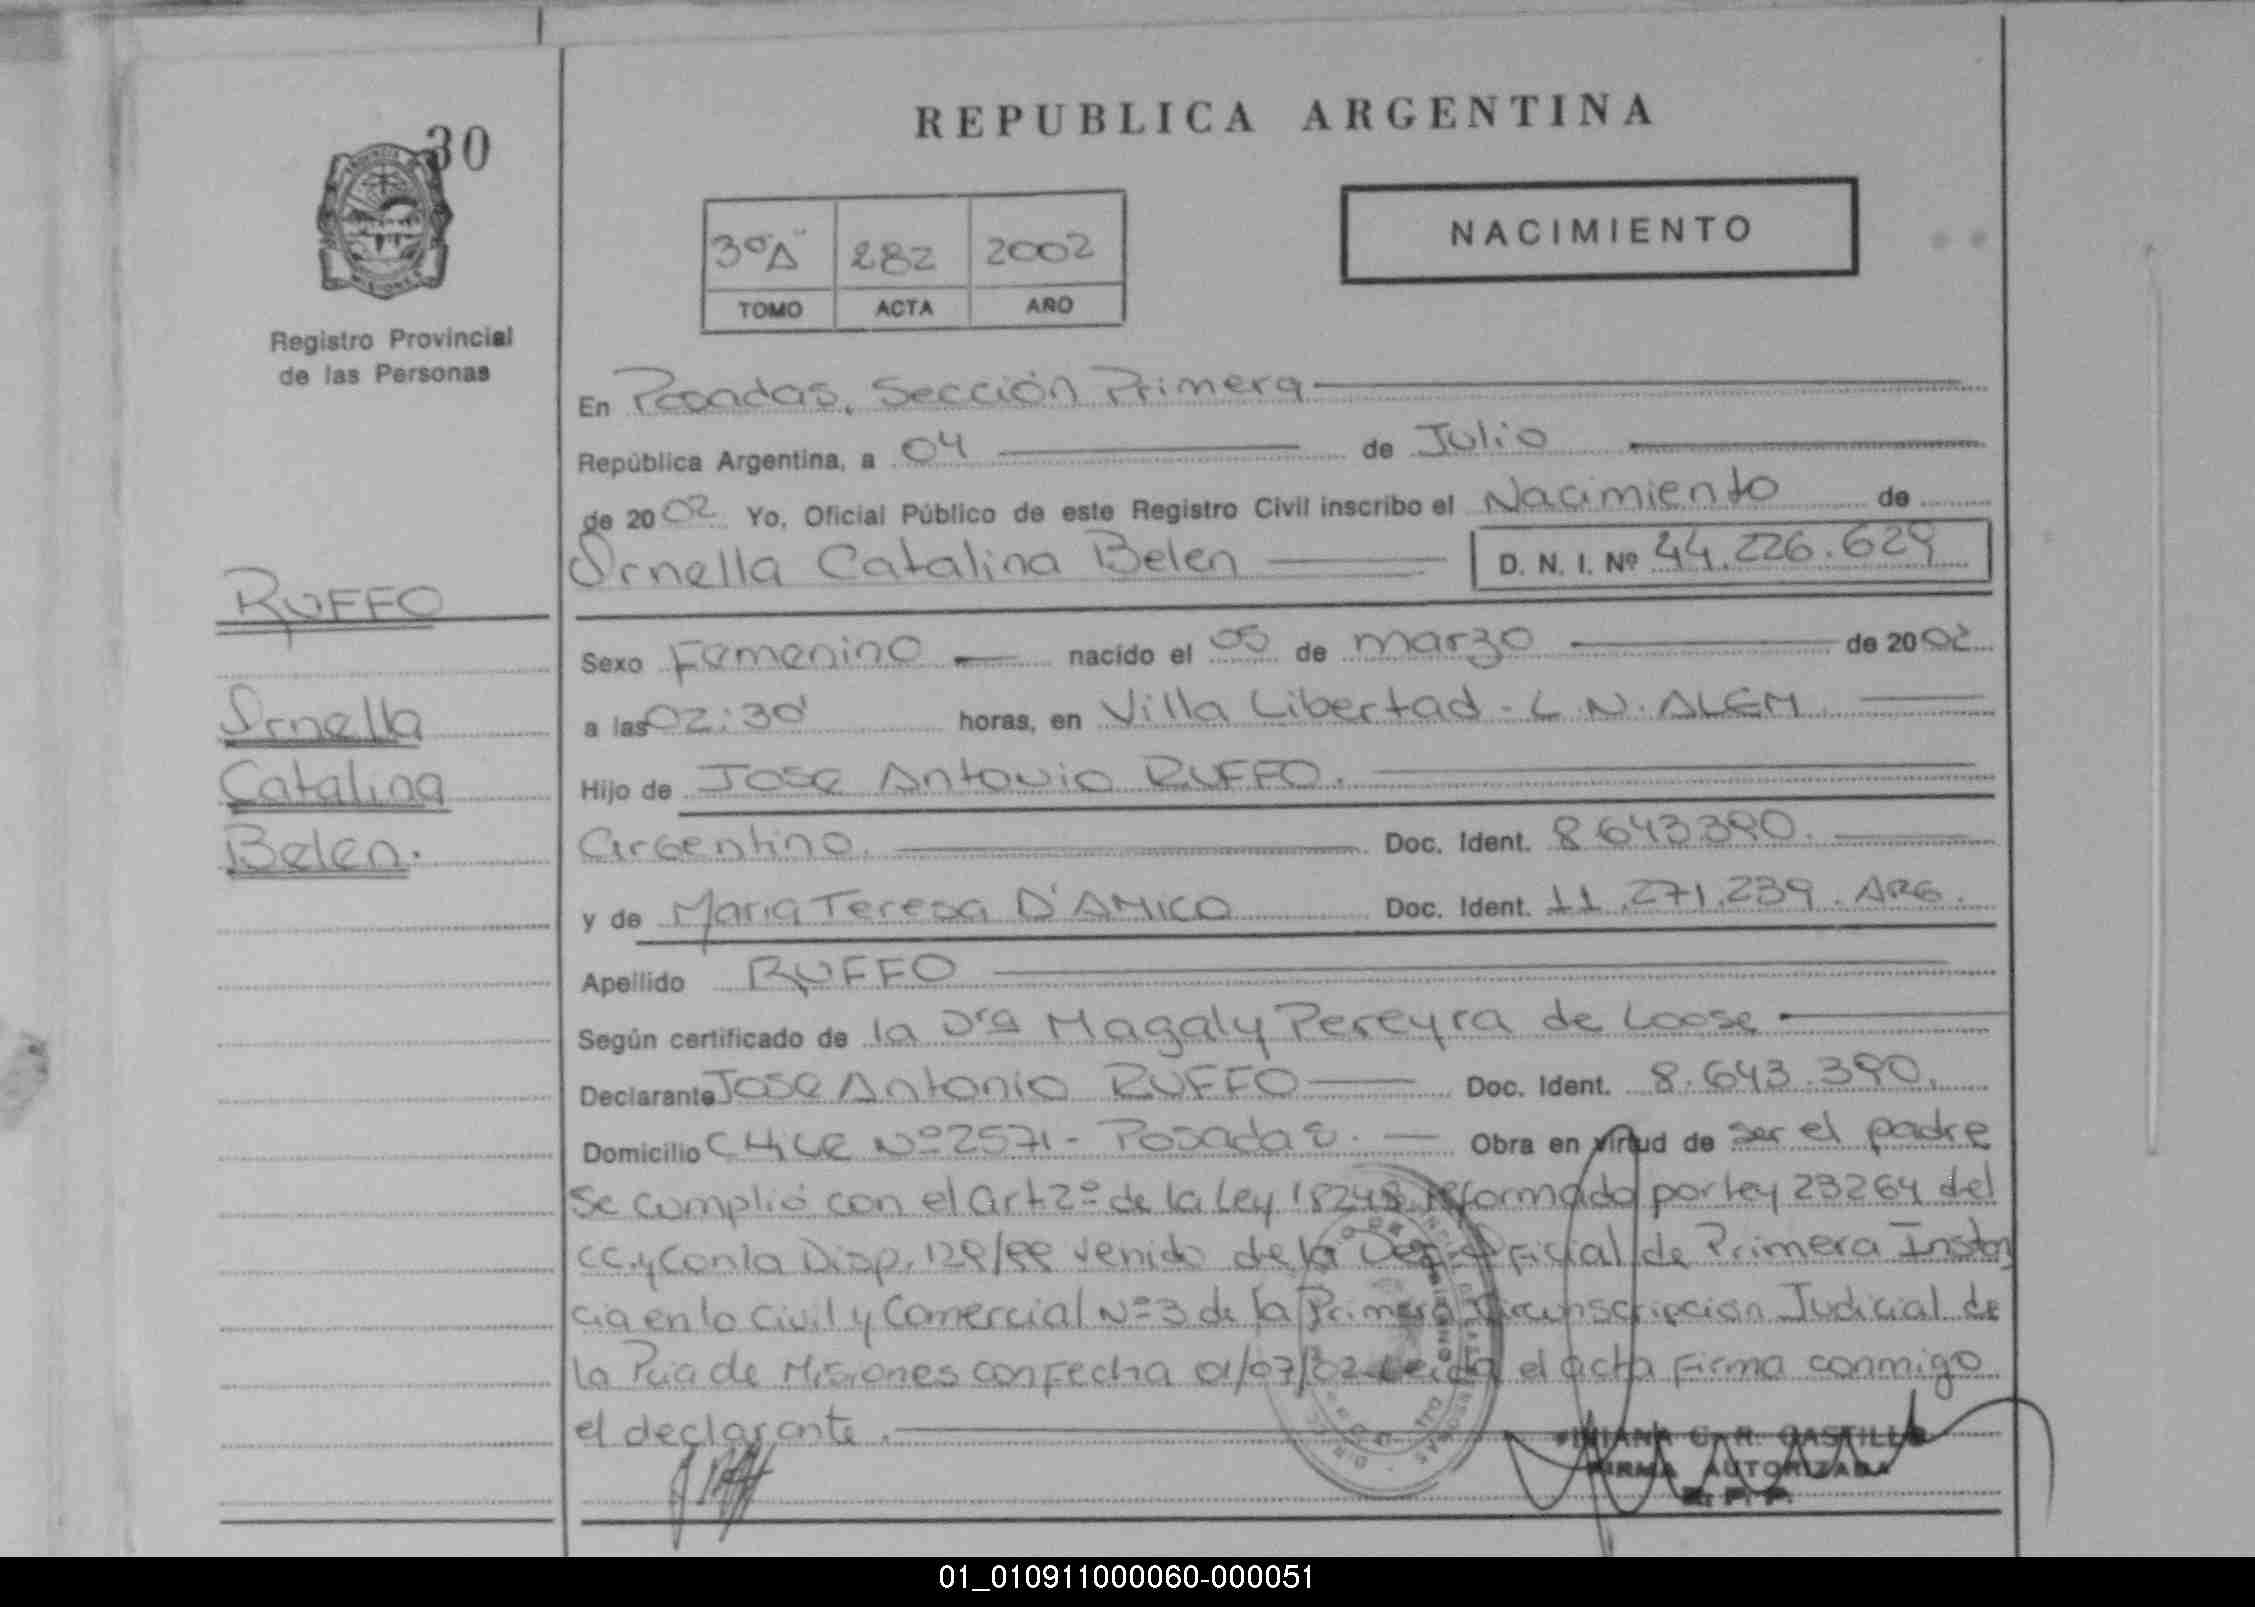 30
REPUBLICA ARGENTINA
NACIMIENTO
3º"A" 282 2002
TOMO ACTA AÑO
Registro Provincial
de las Personas
En Posadas, Sección Primera
República Argentina, a 04 de Julio
de 2002 Yo, Oficial Público de este Registro Civil inscribo el Nacimiento de
Ornella Catalina Belen D. N. I. Nº 44.226.629
RUFFO
Sexo Femenino nacido el 05 de marzo de 2002
Ornella
a las 02:30' horas, en Villa Libertad - L. N. ALEM
Catalina
Hijo de Jose Antonio RUFFO.
Belen.
argentino. Doc. Ident. 8.643.390.
y de Maria Teresa D'AMICO Doc. Ident. 11.271.239. ARG.
Apellido RUFFO
Según certificado de la Dra Magaly Pereyra de Loose
Declarante Jose Antonio RUFFO Doc. Ident. 8.643.390.
Domicilio CHILE Nº 2571 - Posadas. Obra en virtud de ser el padre
Se cumplió con el art 2º de la Ley 18248 reformado por ley 23264 del
CC. y con la Disp. venido de la Oficial de Primera Instan
cia en lo Civil y Comercial Nº 3 de la Primera Circunscripcion Judicial de
la Pcia de Misiones con fecha 01/07/02 Leida el acta firma conmigo
el declarante.
C. R. CASTILLO
FIRMA AUTORIZADA
R. P. P.
01_010911000060-000051